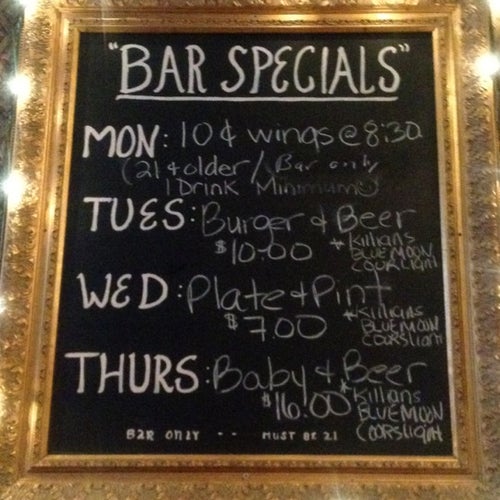 "BAR SPECIALS"
MON: 10¢ wings @ 8:30
(21 & older / Bar only
1 Drink Minimum)
TUES: Burger & Beer
$10.00 * Killians
BLUE MOON
COORSLIGHT
WED: Plate & Pint
$7.00 * Killians
BLUE MOON
COORSLIGHT
THURS: Baby & Beer
$16.00 * Killians
BLUE MOON
COORSLIGHT
BAR ONLY -- MUST BE 21